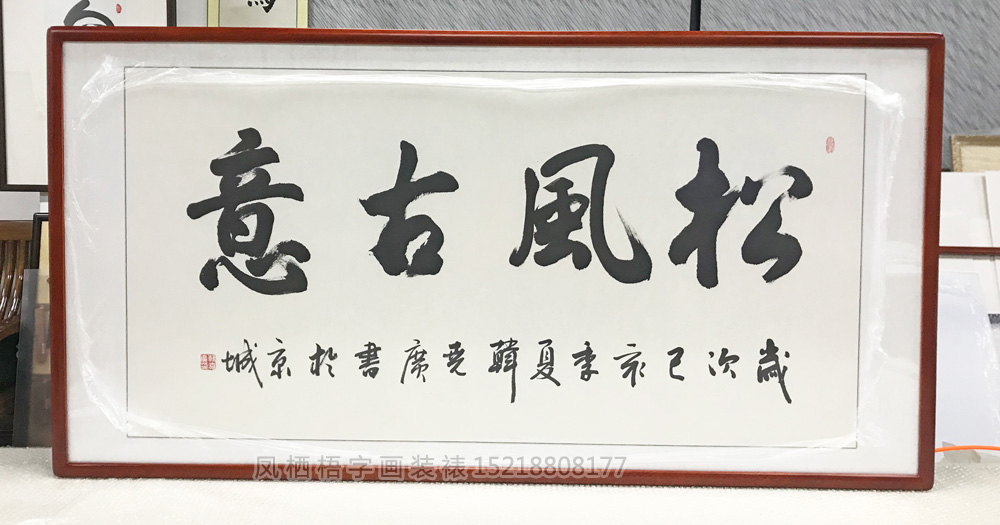 松風古意
歲次己亥季夏韓堯廣書於京城
凤栖梧字画装裱15218808177